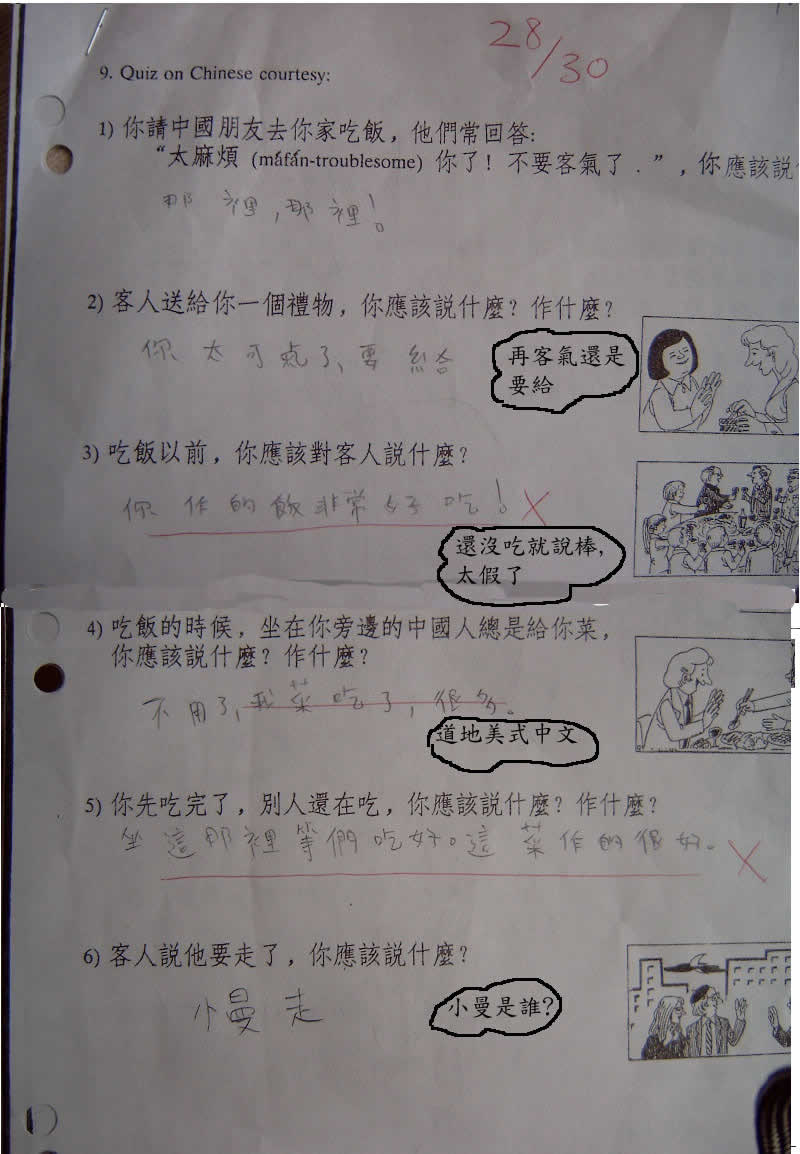 28/30
9. Quiz on Chinese courtesy:
1) 你請中國朋友去你家吃飯，他們常回答:
“太麻煩 (máfán-troublesome) 你了！不要客氣了．”，你應該説
那裡，那裡！
2) 客人送給你一個禮物，你應該説什麼？作什麼？
你太可氣了、要給
再客氣還是
要給
3) 吃飯以前，你應該對客人説什麼？
你作的飯非常好吃！
還沒吃就說棒，
太假了
4) 吃飯的時候，坐在你旁邊的中國人總是給你菜，
你應該説什麼？作什麼？
不用了、我菜吃了，很多。
道地美式中文
5) 你先吃完了，別人還在吃，你應該説什麼？作什麼？
坐這那裡等們吃好。這菜作的很好。
6) 客人説他要走了，你應該説什麼？
小曼走
小曼是誰？